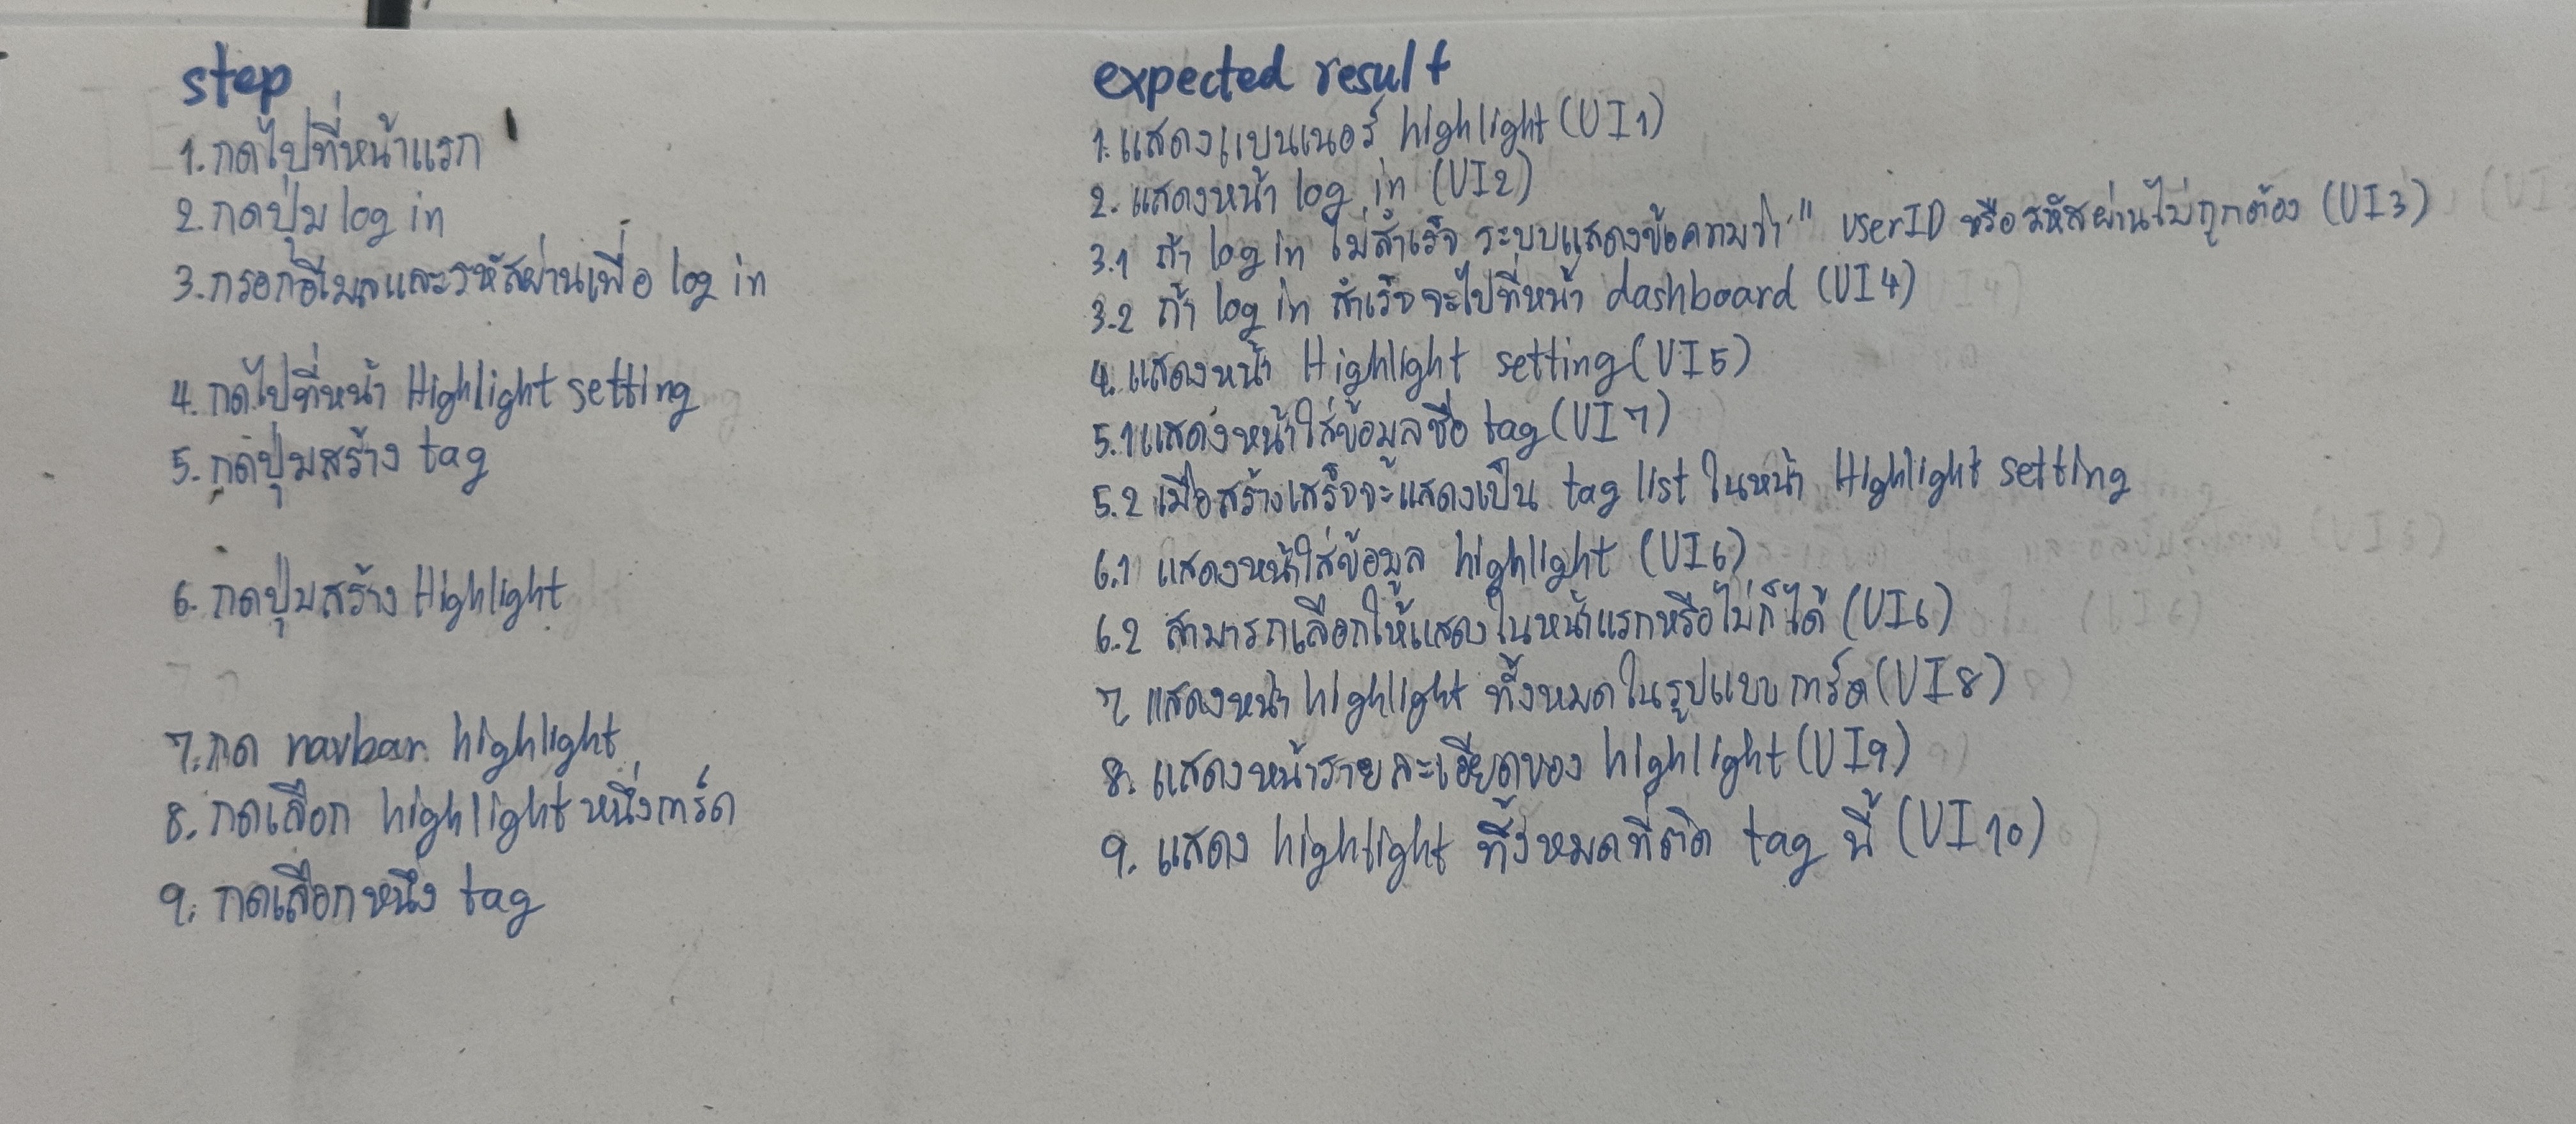 step
1. กดไปที่หน้าแรก
2. กดปุ่ม log in
3. กรอกอีเมลและรหัสผ่านเพื่อ log in
4. กดไปที่หน้า Highlight setting
5. กดปุ่มสร้าง tag
6. กดปุ่มสร้าง Highlight
7. กด navbar highlight
8. กดเลือก highlight หนึ่งการ์ด
9. กดเลือกหนึ่ง tag
expected result
1. แสดงแบนเนอร์ highlight (UI1)
2. แสดงหน้า log in (UI2)
3.1 ถ้า log in ไม่สำเร็จ ระบบแสดงข้อความว่า " userID หรือรหัสผ่านไม่ถูกต้อง (UI3)
3.2 ถ้า log in สำเร็จจะไปที่หน้า dashboard (UI4)
4. แสดงหน้า Highlight setting (UI5)
5.1 แสดงหน้าใส่ข้อมูลชื่อ tag (UI7)
5.2 เมื่อสร้างเสร็จจะแสดงเป็น tag list ในหน้า Highlight setting
6.1 แสดงหน้าใส่ข้อมูล highlight (UI6)
6.2 สามารถเลือกให้แสดงในหน้าแรกหรือไม่ก็ได้ (UI6)
7. แสดงหน้า highlight ทั้งหมดในรูปแบบการ์ด (UI8)
8. แสดงหน้ารายละเอียดของ highlight (UI9)
9. แสดง highlight ทั้งหมดที่ติด tag นี้ (UI10)